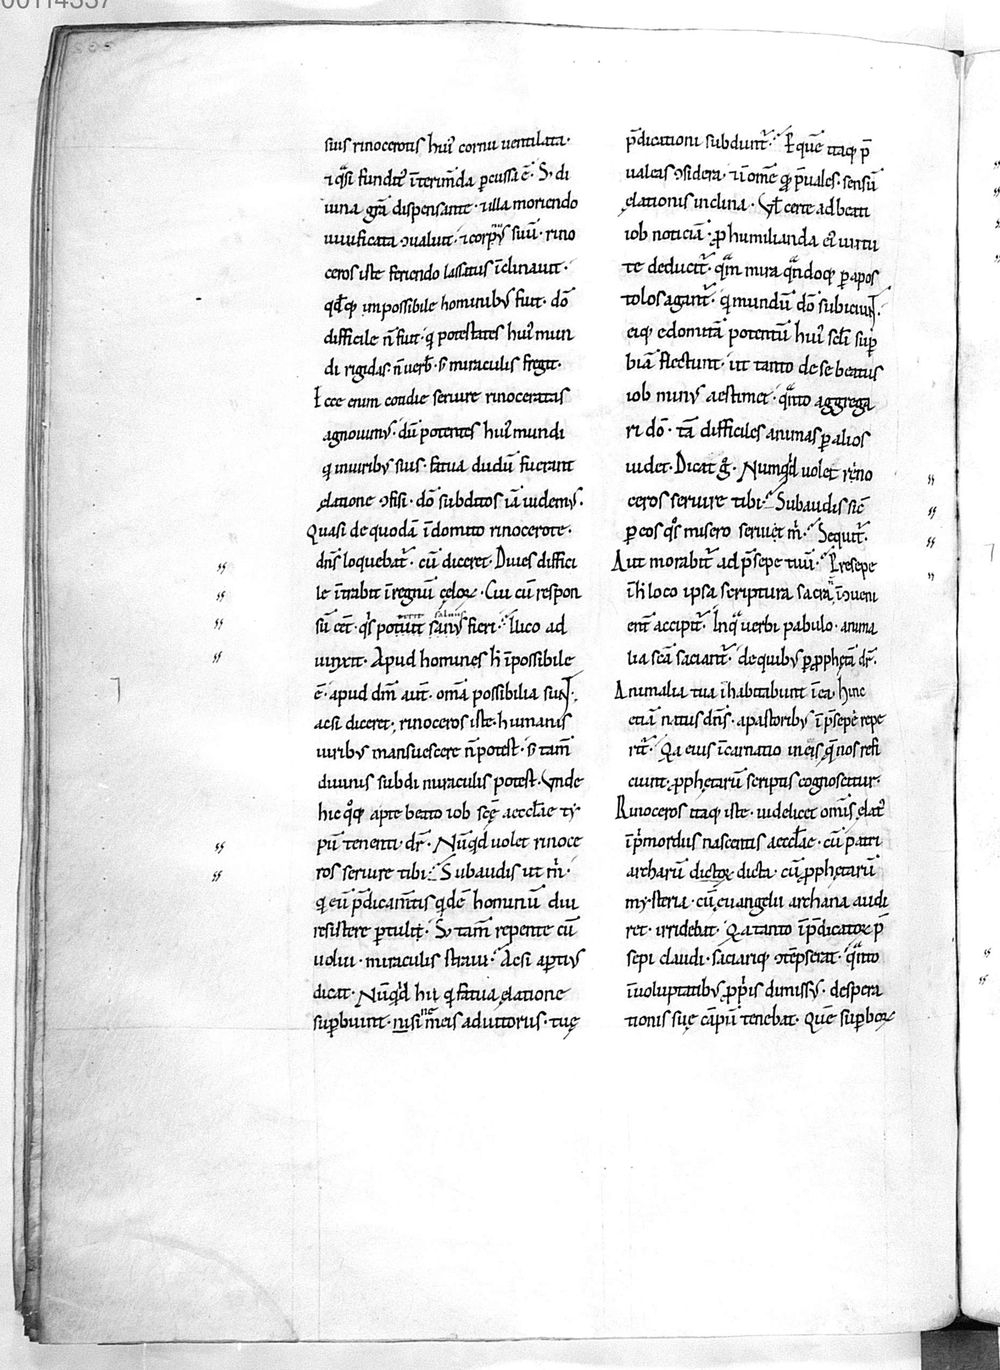 00114337
suis rinocerotis hui᷒ cornu uentilata·
⁊ q̄si fundit᷒ īterim̄da ꝑcussa ē· S; di
uina gr̄a dispensante· ⁊ illa moriendo
uiuificata ↄualuit· ⁊ corpus suū· rino
ceros iste feriendo lassatus īclinauit·
qđq; impossibile hominibꝰ fuit· dō
difficile n̄ fuit· q̇ potestates hui᷒ mun
di rigidas· n̄ uerƀ· s; miraculis fregit·
Ecce enim cotidie seruire rinocerotas
agnouimꝰ· dū potentes hui᷒ mundi
q̇ in uiribꝰ suis· fatua dudū fuerant
elatione ↄfisi· dō subditos iā uidemꝰ·
Quasi de quodā īdomito rinocerote·
dn̄s loquebat᷒· cū diceret· Diues diffici
le ītrabit ī regnū celoꝝ· Cui cū respon
sū eēt· q̇s potuit saluus fieri· Ilico ad
iunxit· Apud homines h̄ īpossibile
ē· apud dm̄ aut̄· om̄a possibilia sunt·
ac si diceret· rinoceros iste· humanis
uiribꝰ mansuescere n̄ potest· s; tam̄
diuinis subdi miraculis potest· Vnde
hic q̊q; apte beato iob scę aeccl̄ae ty
pū tenenti· dr̄· Nūq̇d uolet rinoce
ros seruire tibi· Subaudis ut m̊·
q̇ eū p̄dicam̄tis q̇dē hominū diu
resistere ꝑtuli· S; tam̄ repente cū
uolui· miraculis straui· Ac si aꝑtiꝰ
dicat· Nūq̇d hii q̇ fatua elatione
suꝑbiunt· nisi meis adiutoriis· tuę
p̄dicationi subdunt᷒· Per quē itaq; p̄
ualeas ↄsidera· ⁊ ī om̄e q; p̄uales· sensū
elationis inclina· Vł certe ad beati
iob noticiā· ꝓ humilianda ei᷒ uirtu
te deducit᷒· q̄m mira q̄ndoq; ꝑ apos
tolos agant᷒· q̇ mundū dō subiciunt·
eiq; edomitā potentū hui᷒ scłi suꝑ
biā flectunt· ut tanto de se beatus
iob minꝰ aestimet· q̄nto aggrega
ri dō· tā difficiles animas ꝑ alios
uidet· Dicat g̊· Numq̇d uolet rino
ceros seruire tibi· Subaudis sic̄
ꝑ eos q̊s misero seruiet m̊· Sequit᷒·
Aut morabit᷒ ad p̄sepe tuū· Presepe
ī h̄ loco ipsa scriptura sacra n̄ īↄueni
ent᷒ accipit᷒· In q̄ uerbi pabulo· anima
lia sc̄a saciant᷒· de quibꝰ ꝑ ꝓphetā dr̄·
Animalia tua īhabitabunt ī ea· hinc
etiā natus dn̄s· a pastoribꝰ ī p̄sepe repe
rit᷒· Qa eius īcarnatio in eis q̄ nos refi
ciunt· ꝓphetarū scriptis cognoscitur·
Rinoceros itaq; iste· uidelicet om̄is elat᷒
ī ṗmordiis nascentis aeccl̄ae· cū patri
archarū dictoꝝ dicta· cū ꝓphetarū
mysteria· cū euangelii archana audi
ret· irridebat· Qa tanto ī p̄dicatoꝝ p̄
sepi claudi· saciariq; ↄtēpserat· q̄nto
ī uoluptatibꝰ ꝓpriis dimissꝰ· despera
tionis suę cāpū tenebat· Quē suꝑboꝝ